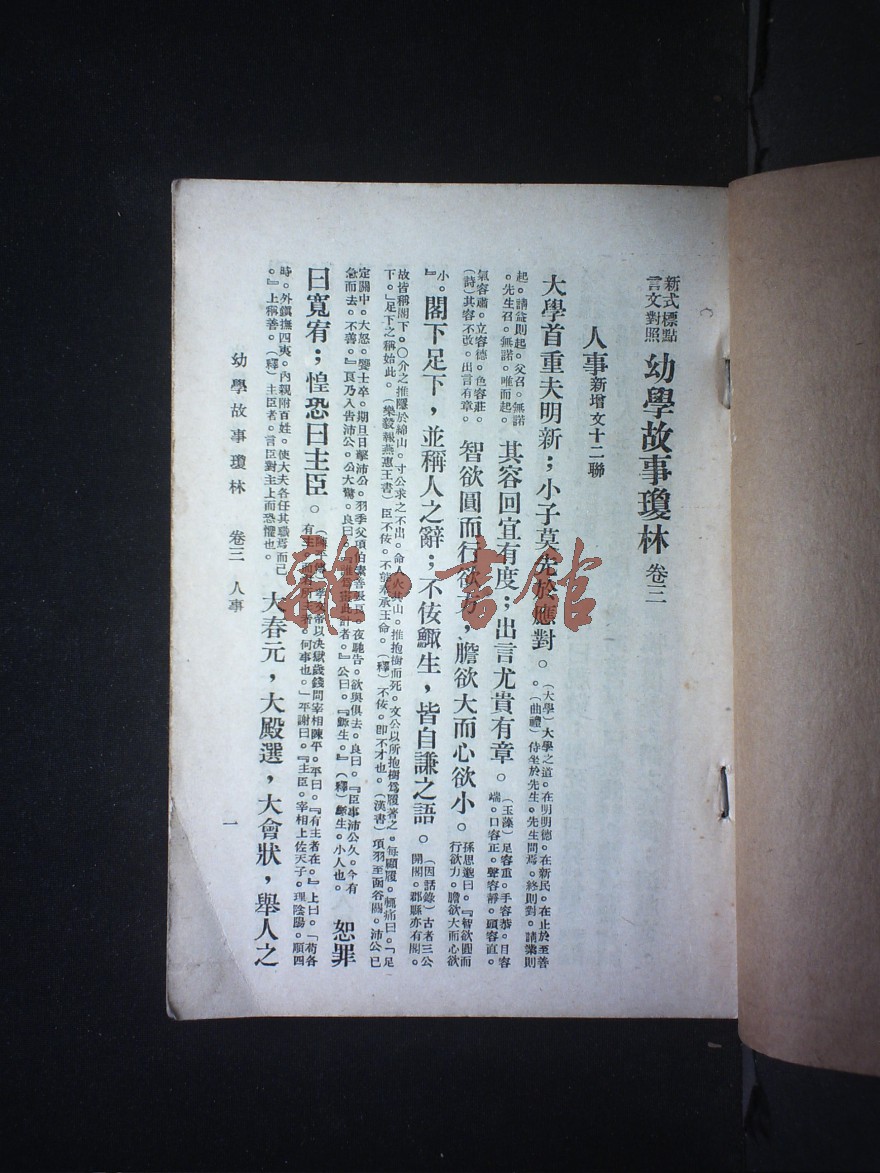 新式標點
言文對照
幼學故事瓊林 卷三
人事 新增文十二聯
大學首重夫明新；小子莫先於應對。
（大學）大學之道。在明明德。在新民。在止於至善
。（曲禮）侍坐於先生。先生問焉。終則對。請業則
起。請益則起。父召。無諾
。先生召。無諾。唯而起。
其容回宜有度；出言尤貴有章。
（玉藻）足容重。手容恭。目容
端。口容正。聲容靜。頭容直。
氣容肅。立容德。色容莊。
（詩）其容不改。出言有章。
智欲圓而行欲方，膽欲大而心欲小。
孫思邈曰。『智欲圓而
行欲方。膽欲大而心欲
小。
』
閣下足下，並稱人之辭；不佞鯫生，皆自謙之語。
（因話錄）古者三公
開閣。郡縣亦有閣。
故皆稱閣下。○介之推隱於綿山。寸公求之不出。命人火其山。推抱樹而死。文公以所抱樹爲履著之。每顧履。輒痛曰。「足
下。」足下之稱始此。（樂毅報燕惠王書）臣不佞。不能奉承王命。（釋）不佞。即不才也。（漢書）項羽至函谷關。沛公已
定關中。大怒。饗士卒。期旦日擊沛公。羽季父項伯素善張良。夜馳告。欲與俱去。良曰。『臣事沛公久。今有
急而去。不善。』良乃入告沛公。公大驚。良曰。『誰爲 此計者。』公曰。『鯫生。』（釋）鯫生。小人也。
恕罪
曰寬宥；惶恐曰主臣。
帝以决獄歲錢問宰相陳平。平曰。『有主者在。』上曰。「苟各
有主。 何事也。」平謝曰。『主臣。宰相上佐天子。理陰陽。順四
時。外鎮撫四夷。內親附百姓。使大夫各任其職焉而已
。』上稱善。（釋）主臣者。言臣對主上而恐懼也。
大春元，大殿選，大會狀，舉人之
幼學故事瓊林 卷三 人事
一
雜·書館